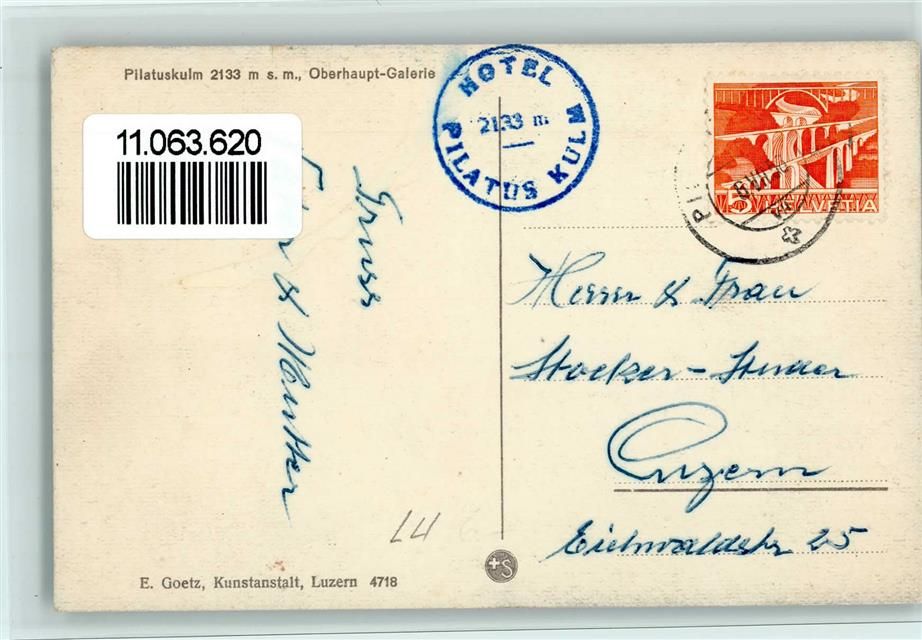 Pilatuskulm 2133 m s. m., Oberhaupt-Galerie
11.063.620
HOTEL
2133 m
PILATUS KULM
5 HELVETIA
Gruss
& Mutter
Herrn & Frau
Stocker-Studer
Luzern
Eichwaldstr 25
LU
+S
E. Goetz, Kunstanstalt, Luzern 4718